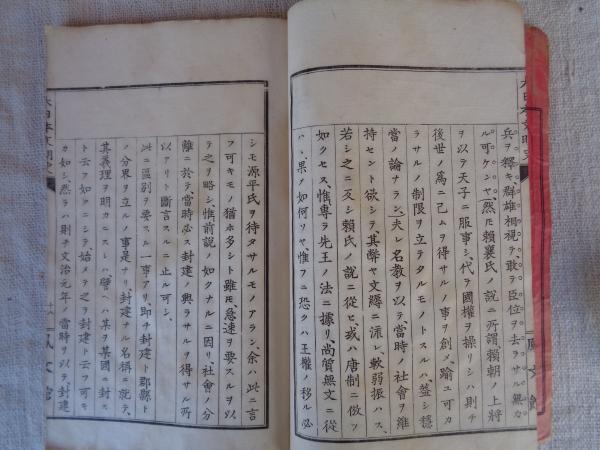 大日本文明史
兵ヲ釋キ群雄相視テ、敢テ臣位ヲ去ラサル無カ
ル可ケンヤ、然モ賴襄氏ノ說ニ所謂、賴朝ノ上將
ヲ以テ天子ニ服事シ、代テ國權ヲ操リシハ則チ
後世ノ爲ニ已ムヲ得サルノ事ヲ創メ、踰ユ可カ
ラサルノ制限ヲ立テタルモノトスルハ、蓋シ穩
當ノ論ナラン、夫レ名教ヲ以テ、當時ノ社會ヲ維
持セント欲シテ、其弊ヤ文縟ニ流レ、軟弱振ハス、
若シ之ニ反シ賴氏ノ說ニ從ヒ、或ハ唐制ニ倣フ
如クセス、惟專ラ先王ノ法ニ據リ、尚質無文ニ從
ハヽ、果ノ如何ソヤ、惟フニ恐クハ王權ノ移ル必
シモ源平氏ヲ待タサルモノアラン、余ハ此ニ言
フ可キモノ猶ホ多シト雖モ、急速ヲ要スルヲ以
テ之ヲ略シ、惟前說ノ如クナルニ因リ、社會ノ分
離ニ於テ、當時必ス封建ノ興ラサルヲ得サル所
以アリト斷言スルニ止ル可シ、
此ニ區別ヲ要スル一事アリ、即チ封建ト郡縣ト
ノ分界ヲ立ルノ事是ナリ、封建ナル名稱ニ就テ、
其義理ヲ明カニスレハ、譬ヘハ某ヲ某國ニ封ス
ト云フ如クニシテ、始メテ之ヲ封建ト云フ可キ
カ如シ、然ラハ則チ文治元年ノ當時ヲ以テ封建
大日本文明史